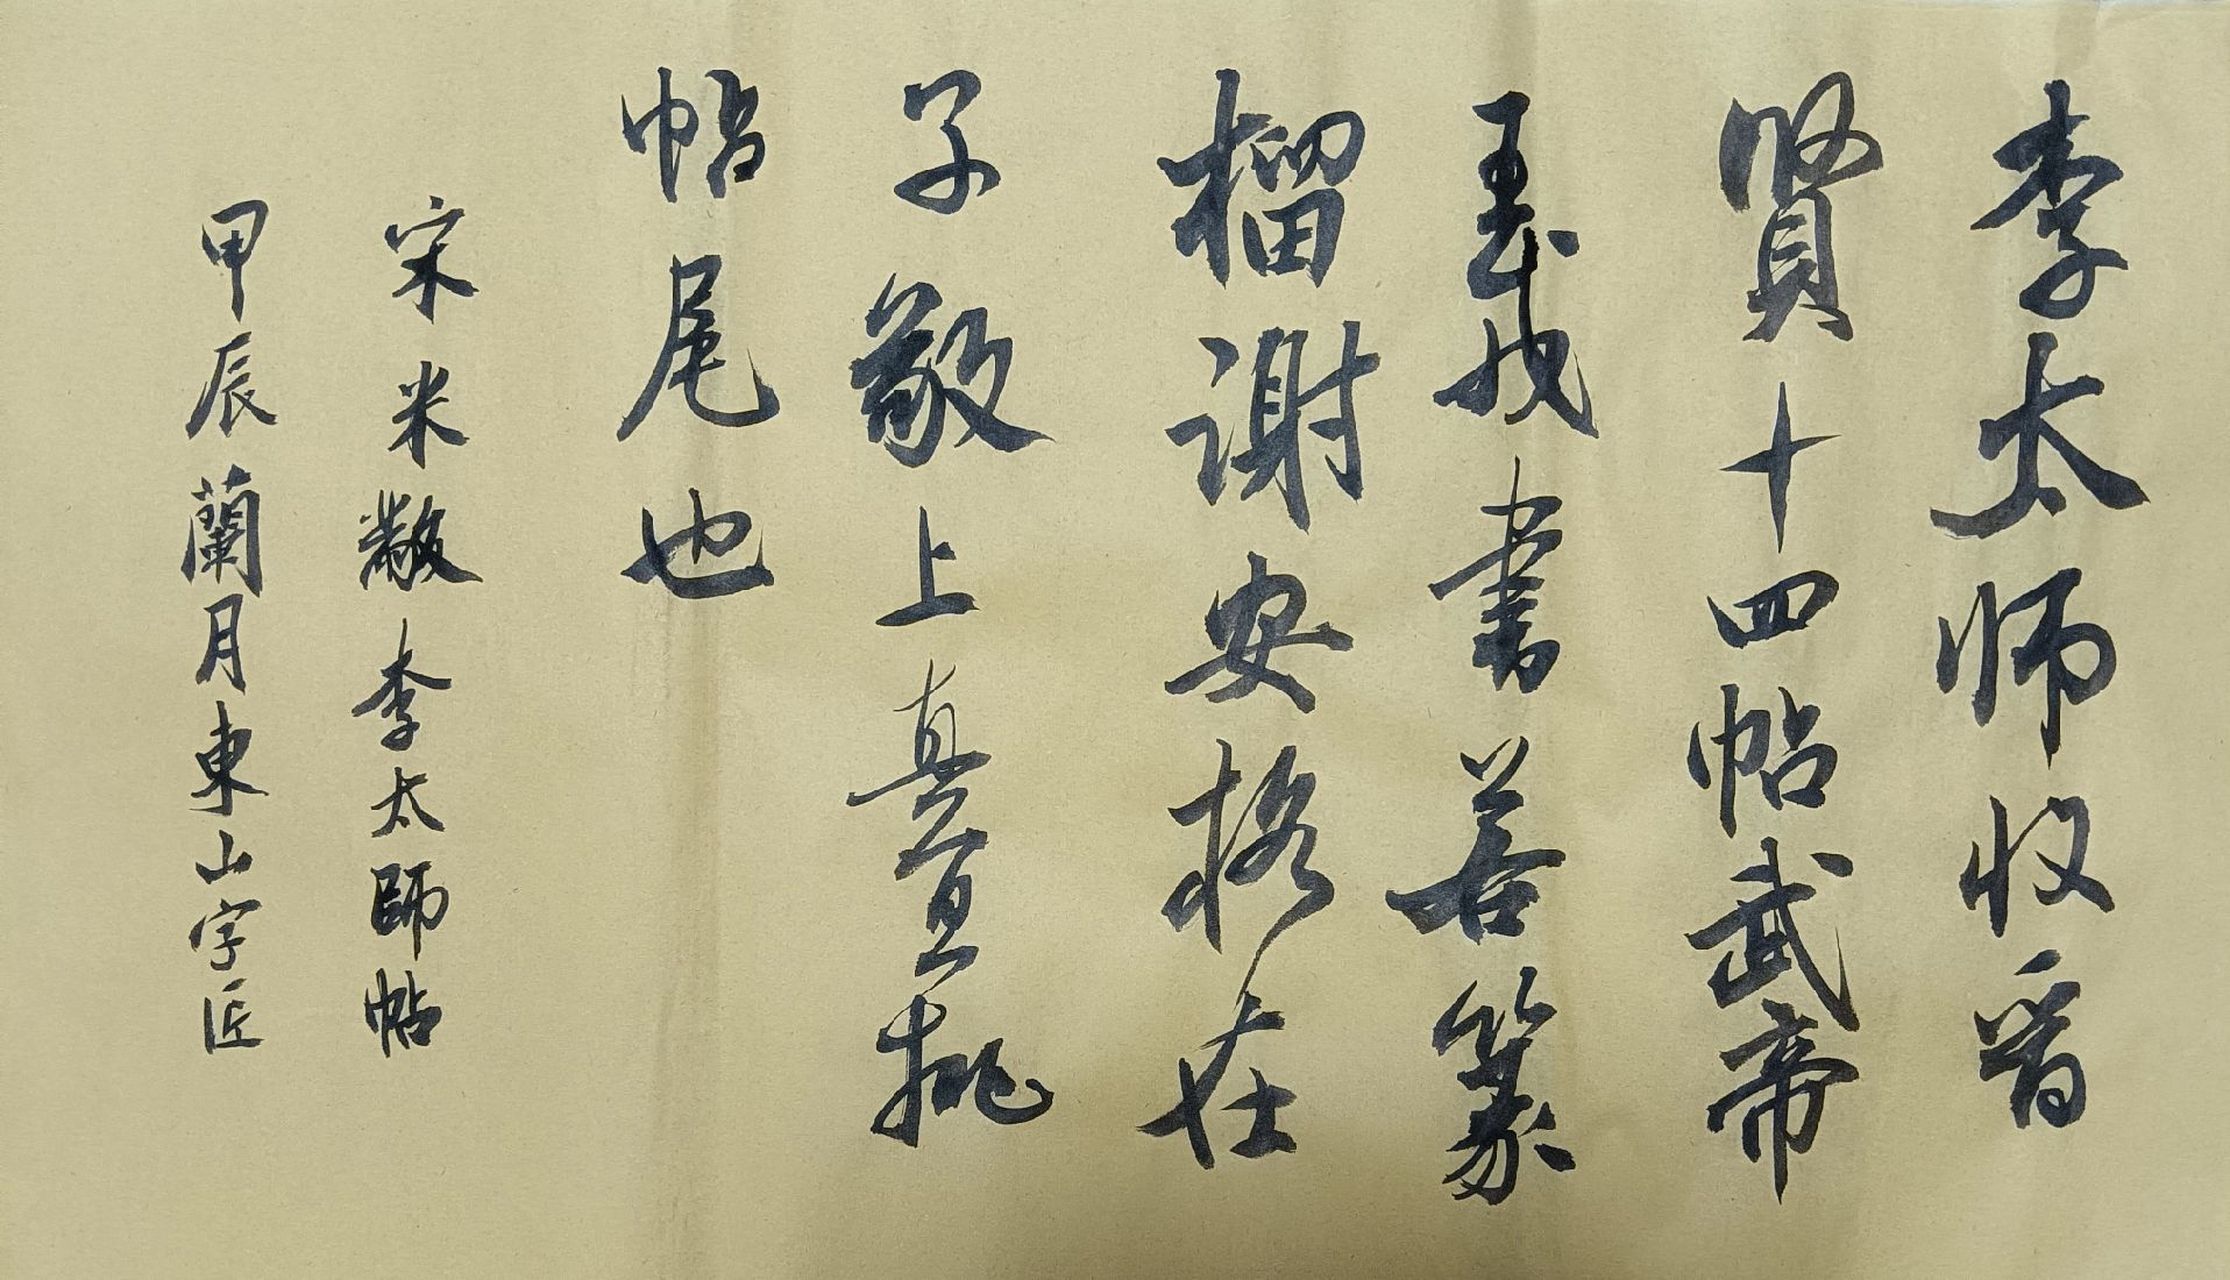 李太师收晋
賢十四帖武帝
王戎書若篆
榴謝安格在
子敬上真宜批
帖尾也
宋米黻李太師帖
甲辰蘭月東山字匠